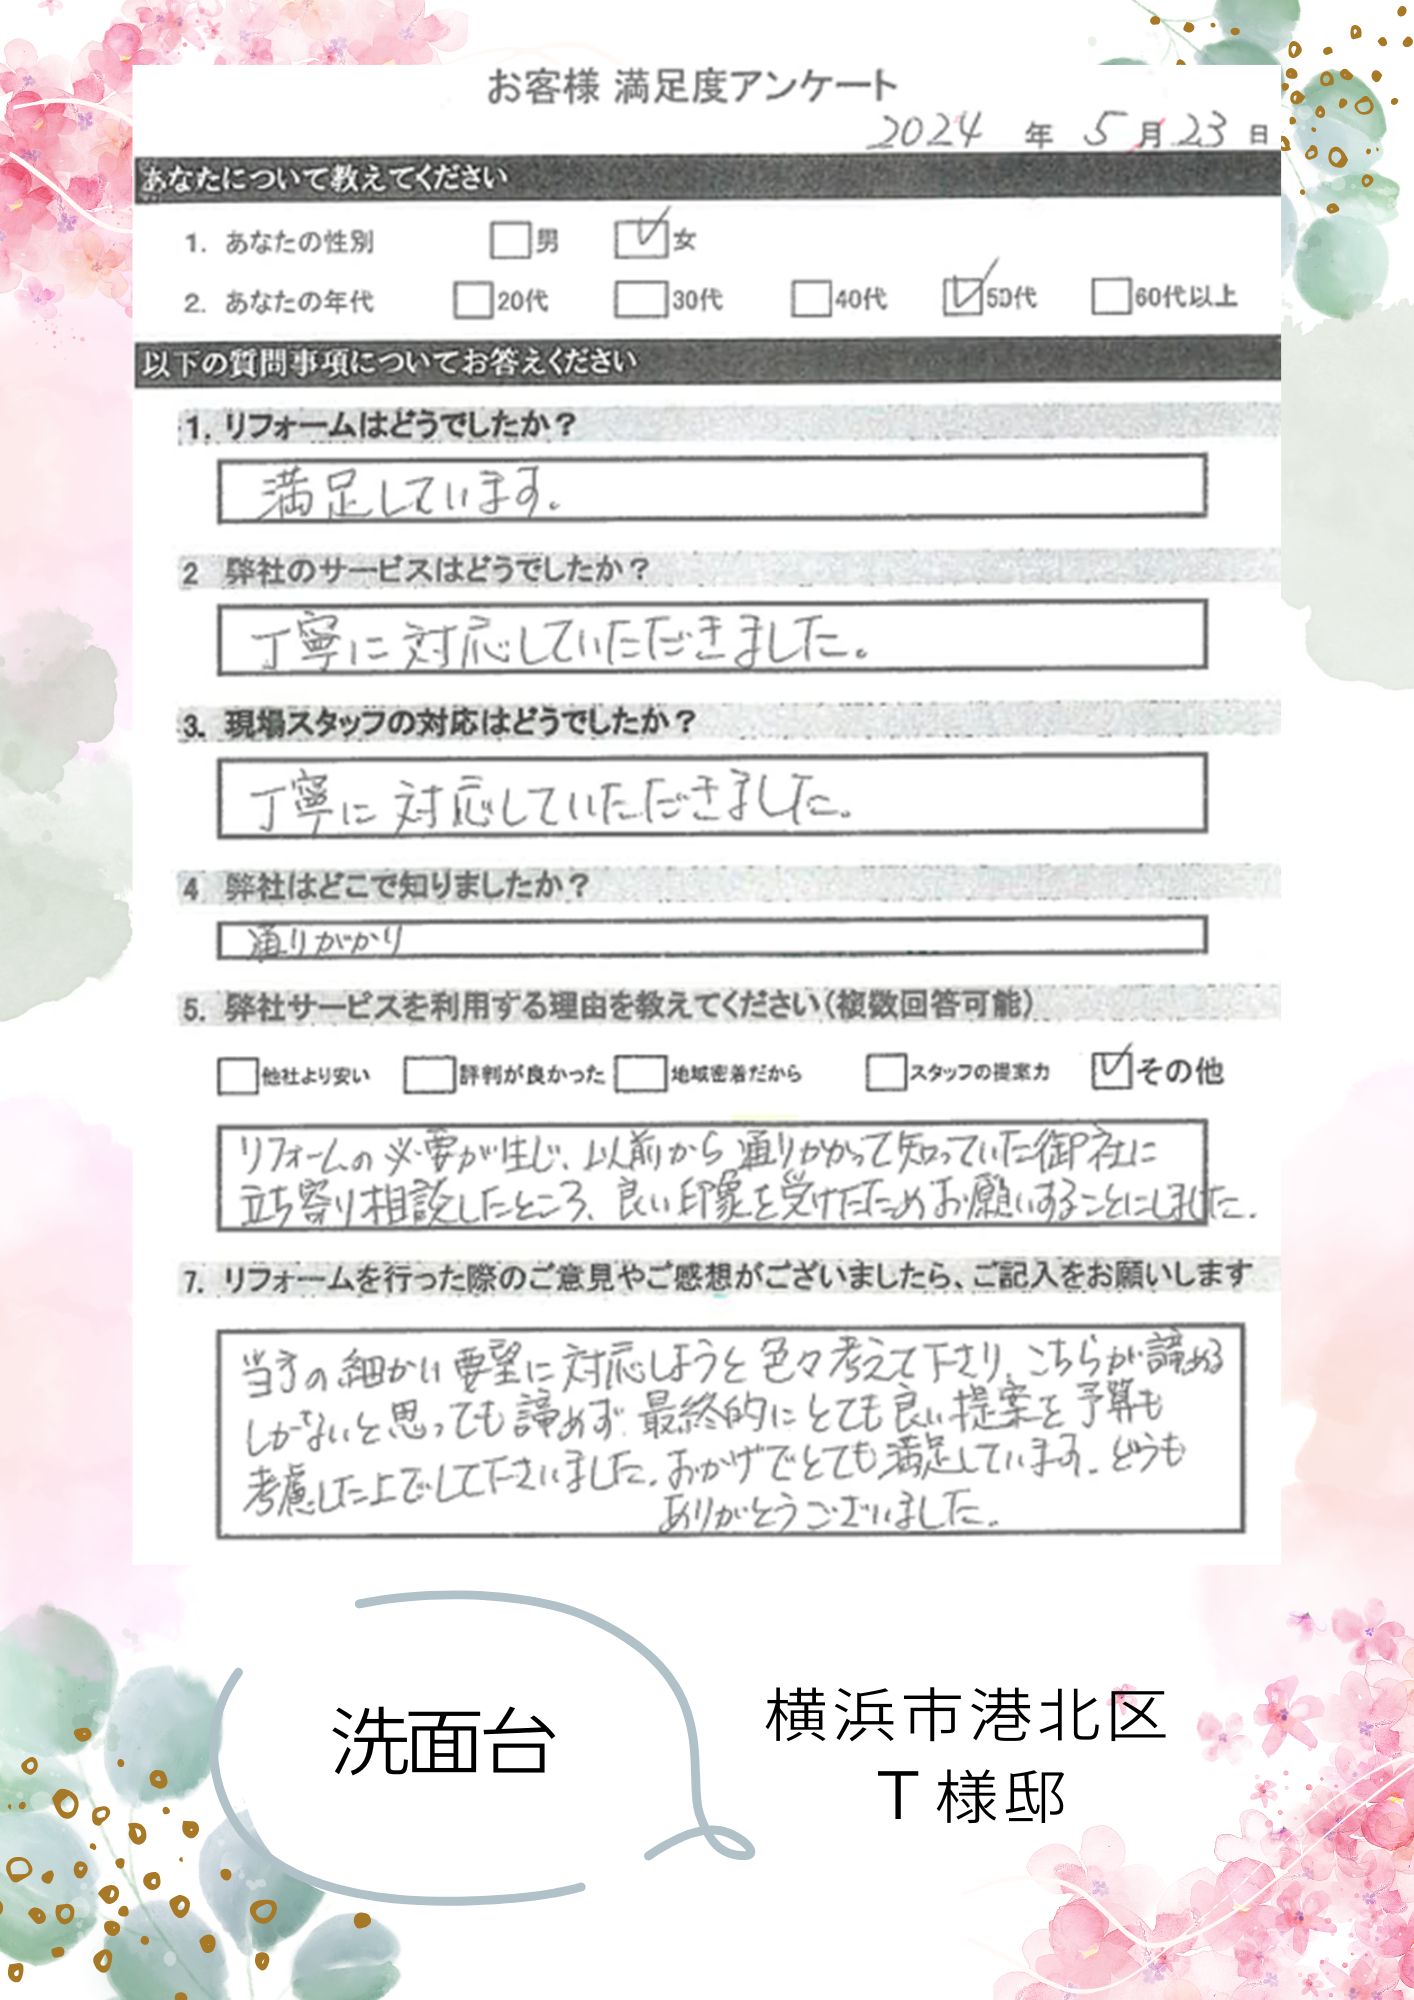 お客様 満足度アンケート
2024 年 5 月 23 日
あなたについて教えてください
1. あなたの性別 男 女
2. あなたの年代 20代 30代 40代 50代 60代以上
以下の質問事項についてお答えください
1. リフォームはどうでしたか？
満足しています。
2 弊社のサービスはどうでしたか？
丁寧に対応していただきました。
3. 現場スタッフの対応はどうでしたか？
丁寧に対応していただきました。
4 弊社はどこで知りましたか？
通りがかり
5. 弊社サービスを利用する理由を教えてください（複数回答可能）
他社より安い 評判が良かった 地域密着だから スタッフの提案力 その他
リフォームの必要が生じ、以前から通りかかって知っていた御社に
立ち寄り相談したところ、良い印象を受けたためお願いすることにしました.
7. リフォームを行った際のご意見やご感想がございましたら、ご記入をお願いします
当方の細かい要望に対応しようと色々考えて下さり、こちらが諦める
しかないと思っても諦めず、最終的にとても良い提案を予算も
考慮した上でして下さいました。おかげでとても満足しています。どうも
ありがとうございました。
洗面台
横浜市港北区
T 様邸